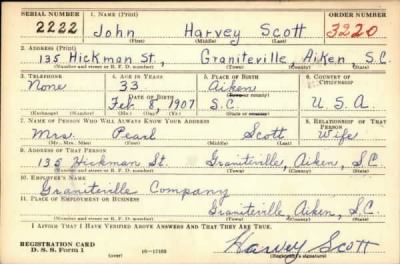 SERIAL NUMBER 1. NAME (Print) ORDER NUMBER
2222 John Harvey Scott 3220
(First) (Middle) (Last)
2. ADDRESS (Print)
135 Hickman St., Graniteville, Aiken S.C.
(Number and street or R. F. D. number) (Town) (County) (State)
3. TELEPHONE 4. AGE IN YEARS 5. PLACE OF BIRTH 6. COUNTRY OF CITIZENSHIP
None 33 Aiken
DATE OF BIRTH (Town or county)
Feb 8, 1907 S.C. U.S.A
(Exchange) (Number) (Mo.) (Day) (Yr.) (State or country)
7. NAME OF PERSON WHO WILL ALWAYS KNOW YOUR ADDRESS 8. RELATIONSHIP OF THAT PERSON
Mrs. Pearl Scott Wife
(Mr., Mrs., Miss) (First) (Middle) (Last)
9. ADDRESS OF THAT PERSON
135 Hickman St. Graniteville, Aiken, S.C.
(Number and street or R. F. D. number) (Town) (County) (State)
10. EMPLOYER'S NAME
Graniteville Company
11. PLACE OF EMPLOYMENT OR BUSINESS
Graniteville, Aiken, S.C.
(Number and street or R. F. D. number) (Town) (County) (State)
I AFFIRM THAT I HAVE VERIFIED ABOVE ANSWERS AND THAT THEY ARE TRUE.
REGISTRATION CARD
D. S. S. Form 1 (over) Harvey Scott
(Registrant's signature)